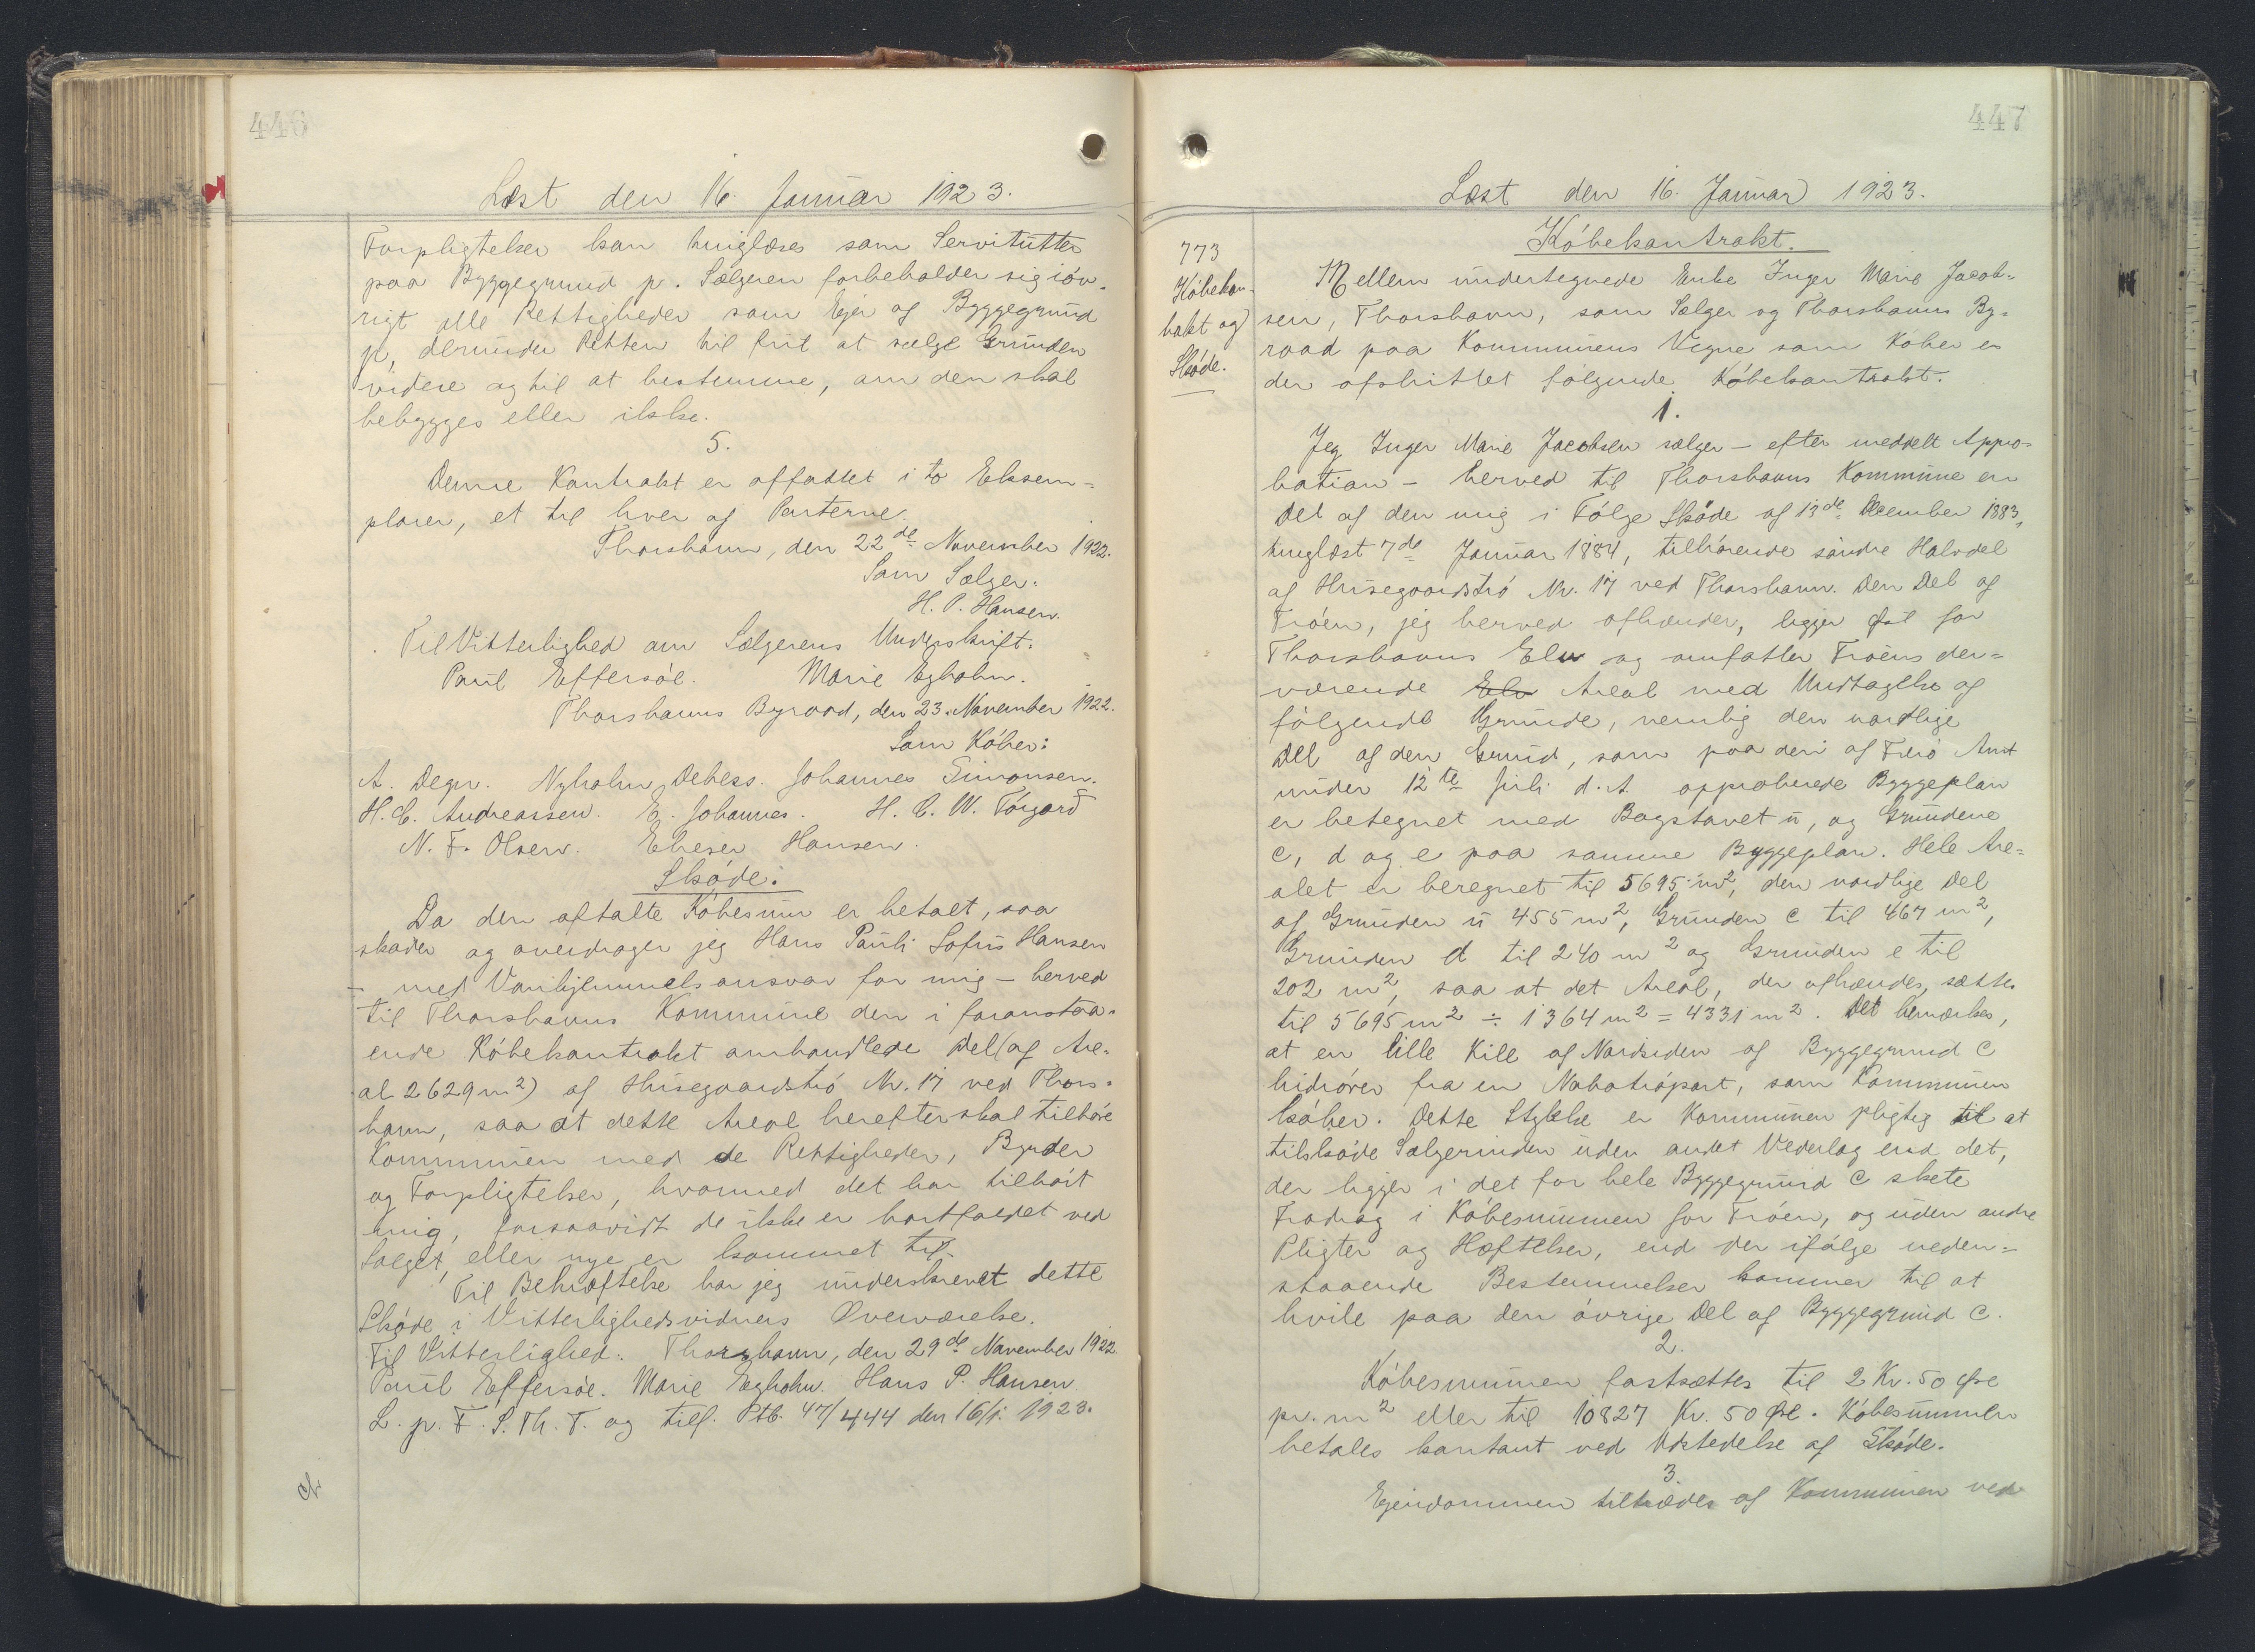 446
Læst den 16. Januar 1923.
Forpligtelser kan tinglæses som Servitutter
paa Byggegrund p. Sælgeren forbeholder sig iøv-
rigt alle Rettigheder som Ejer af Byggegrund
p, derunder Retten til frit at sælge Grunden
videre og til at bestemme, om den skal
bebygges eller ikke.
5.
Denne Kontrakt er affattet i to Eksem=
plarer, et til hver af Parterne.
Thorshavn, den 22de November 1922.
Som Sælger:
H. P. Hansen.
Til Vitterlighed om Sælgerens Underskrift:
Paul Effersøe. Marie Egholm.
Thorshavns Byraad, den 23. November 1922.
Som Køber:
A. Degn. Nyholm Debess. Johannes Simonsen.
H. C. Andreassen. E. Johannes. H. C. W. Tórgarð
N. F. Olsen. Elieser Hansen.
Skøde:
Da den aftalte Købesum er betalt, saa
skøder og overdrager jeg Hans Pauli Sofus Hansen
– med Vanhjemmelsansvar for mig – herved
til Thorshavns Kommune den i foranstaa-
ende Købekontrakt omhandlede Del (af Are-
al 2629 m²) af Husegaardstrø Nr. 17 ved Thors-
havn, saa at dette Areal herefter skal tilhøre
Kommunen med de Rettigheder, Byrder
og Forpligtelser, hvormed det har tilhørt
mig, forsaavidt de ikke er bortfaldet ved
Salget, eller nye er kommet til.
Til Bekræftelse har jeg underskrevet dette
Skøde i Vitterlighedsvidners Overværelse.
Til Vitterlighed: Thorshavn, den 29de November 1922.
Paul Effersøe. Marie Egholm. Hans P. Hansen
L. p. F. S. Th. T. og tilf. Ptb. 47/444 den 16/1. 1923.
447
Læst den 16. Januar 1923.
773
Købekon-
trakt og
Skøde.
Købekontrakt.
Mellem undertegnede Enke Inger Marie Jacob-
sen, Thorshavn, som Sælger og Thorshavns By-
raad paa Kommunens Vegne som Køber er
der afsluttet følgende Købekontrakt.
1.
Jeg Inger Marie Jacobsen sælger – efter meddelt Appro-
bation – herved til Thorshavns Kommune en
Del af den mig i Følge Skøde af 13de December 1883,
tinglæst 7de Januar 1884, tilhørende søndre Halvdel
af Husegaardstrø Nr. 17 ved Thorshavn. Den Del af
Trøen, jeg herved afhænder, ligger Øst for
Thorshavns Elv og omfatter Trøens der=
værende Elv Areal med Undtagelse af
følgende Grunde, nemlig den nordlige
Del af den Grund, som paa den af Færø Amt
under 12te Juli d. A. approberede Byggeplan
er betegnet med Bogstavet u, og Grundene
c, d og e paa samme Byggeplan. Hele Are=
alet er beregnet til 5695 m², den nordlige Del
af Grunden u 455 m², Grunden c til 467 m²,
Grunden d til 240 m² og Grunden e til
202 m², saa at det Areal, der afhændes, sættes
til 5695 m² ÷ 1364 m² = 4331 m². Det bemærkes,
at en lille Kile af Nordsiden af Byggegrund c
hidrører fra en Nabotrøpart, som Kommunen
køber. Dette Stykke er Kommunen pligtig til at
tilskøde Sælgerinden uden andet Vederlag end det,
der ligger i det for hele Byggegrund c skete
Fradrag i Købesummen for Trøen, og uden andre
Pligter og Hæftelser, end der ifølge neden=
staaende Bestemmelser kommer til at
hvile paa den øvrige Del af Byggegrund c.
2.
Købesummen fastsættes til 2 Kr. 50 Øre
pr. m² eller til 10827 Kr. 50 Øre. Købesummen
betales kontant ved Udstedelse af Skøde.
3.
Ejendommen tiltrædes af Kommunen ved